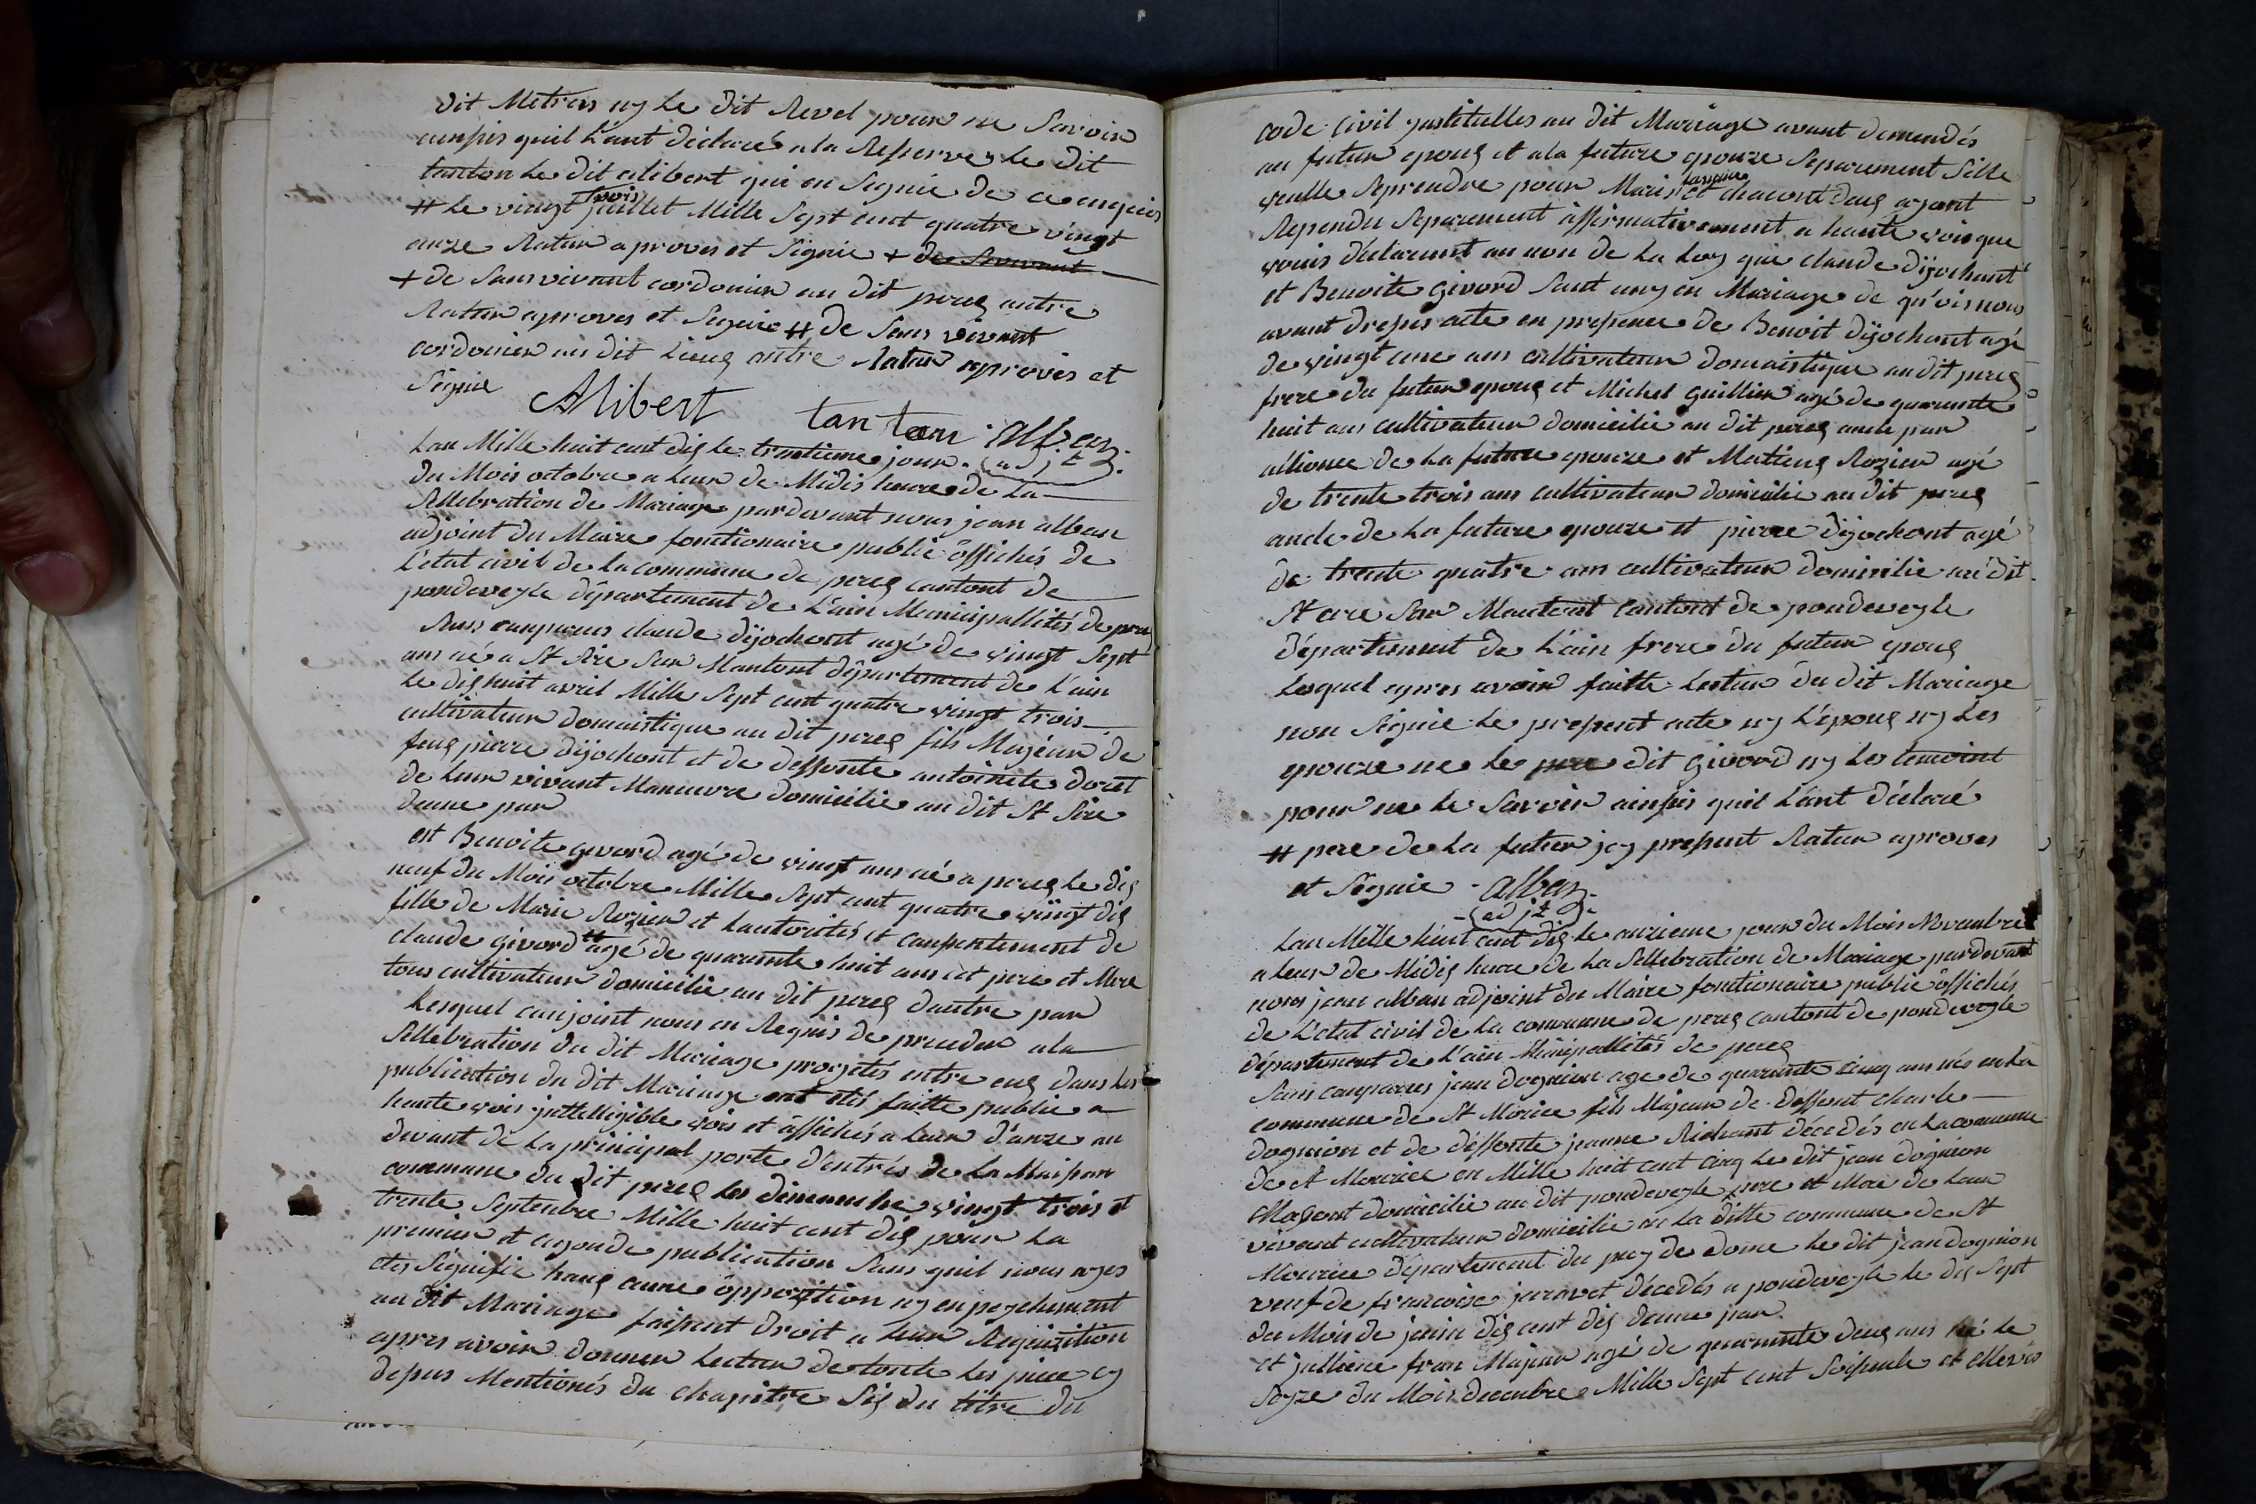 dit Metras ny le dit Revel pour ne Savoir
ainsis quil l'ant déclaré ala Reserve le dit
tanton le dit alibert qui on Signie de ce enquis
# le vingt trois juillet Mille Sept cent quatre vingt
onze Ratur aprover et Signie + de Servivant
+ de Sans vivant cordonier au dit perex autre
Ratur aprover et Signie # de Sans vivant
cordonier au dit Lieux autre Ratur aprover et
Signie
Alibert tantan alban
adjt
Lan Mille huit cent dix le trantieme jour
du Mois octobre a leur de Midis heure de la
Sellebration de Mariage pardevant nous jean alban
adjoint du Maire fonctionaire public offichés de
L'etat civil de la commune de perex cantont de
pondeveyle département de L'ain Municipallités de perex
Sans comparus claude dijochont agé de vingt Sept
ans né a St Sire Sur Mantont département de L'ain
le dix huit avril Mille Sept cent quatre vingt trois
cultivateur domaistique au dit perex fils Majéur de
feux pierre dijochont et de deffonte antoinete doret
de leur vivant Maneuvre domicilié au dit St Sire
dune par
et Benoite givord agé de vingt ans né a perex le dix
neuf du Mois octobre Mille Sept cent quatre vingt dix
fille de Marie Rozier et Lautorités et consentement de
claude givord # agé de quarante huit ans cet pere et Mere
tous cultivateur domicilie au dit perex dautre par
Lesquel conjoint nous on Requis de proceder ala
Sellebration du dit Mariage projetés entre eux dans les
publication du dit Mariage ont etés faitte public a
haute vois jntelligible vois et affichés a leur d'onze au
devant de la principal porte d'entrés de la Maison
commune du dit perex les dimanche vingt trois et
trente Septenbre Mille huit cent dix pour la
premier et cegonde publication Sans quil nous ayes
etes Signifie haus cune opposition ny enpeychement
au dit Mariage faisant droit a leur Requisition
apres avoir donner Lectur de toute les piece cy
depus Mentionés du chapitre Six du titre du
code civil jnstitulles au dit Mariage avant demendés
au futur epoux et ala future epouze Separement Sille
veulle Seprendre pour Maris et famme chacont deux ayant
Rependu Separement affirmativement a haute vois que
vouis déclarent au non de la Loy que claude dijochont
et Benoite givord Sont uny en Mariage de qu'ois nous
avont dresses acte en presence de Benoit dijochont agé
de vingt une ans cultivateur domaistique au dit perex
frere du futur epoux et Michel guillier agé de quarante
huit ans cultivateur domicilie au dit perex oncle par
alience de la future epouze et Matieux Rozier agé
de trente trois ans cultivateur domicilie au dit perex
oncle de la future epouze et pierre dijochont agé
de trente quatre ans cultivateur domicilie au dit
St cire Sur Mantont cantont de pondeveyle
département de L'ain frere du futur epoux
Lesquel apres avoir faitte lectur du dit Mariage
non Signie le present acte ny L'époux ny les
epouze ne le pere dit givord ny les temoint
pour ne le Savoir ainsis quil L'ant déclaré
# pere de la futur jcy present Ratur aprover
et Signie alban
adjt
Lan Mille huit cent dix le onzieme jour du Mois Novembre
a leur de Midis heure de la Sellebration de Mariage pardevant
nous jean alban adjoint du Maire fonctionaire public offichés
de L'etat civil de la commune de perex cantont de pondeveyle
département de L'ain Minipallités de perex
Sans comparus jean dognion age de quarante cinq ans nés en la
commune de St Morice fils Majeur de deffont charle
dognion et de deffonte jeanne Richant décedés en la commune
de St Mourice en Mille huit cent cinq le dit jean dognion
Masont domicilie au dit pondeveyle pere et Mere de leur
vivant cultivateur domicilie en la ditte commune de St
Mourice département du puy de dome le dit jean dognion
veuf de francoise juravet décédés a pondeveyle le dix Sept
du Mois de juin dix cent dix dune par
et jullience fran Majeur agé de quarante deux ans né le
Seyze du Mois decenbre Mille Sept cent Soissante et Mere